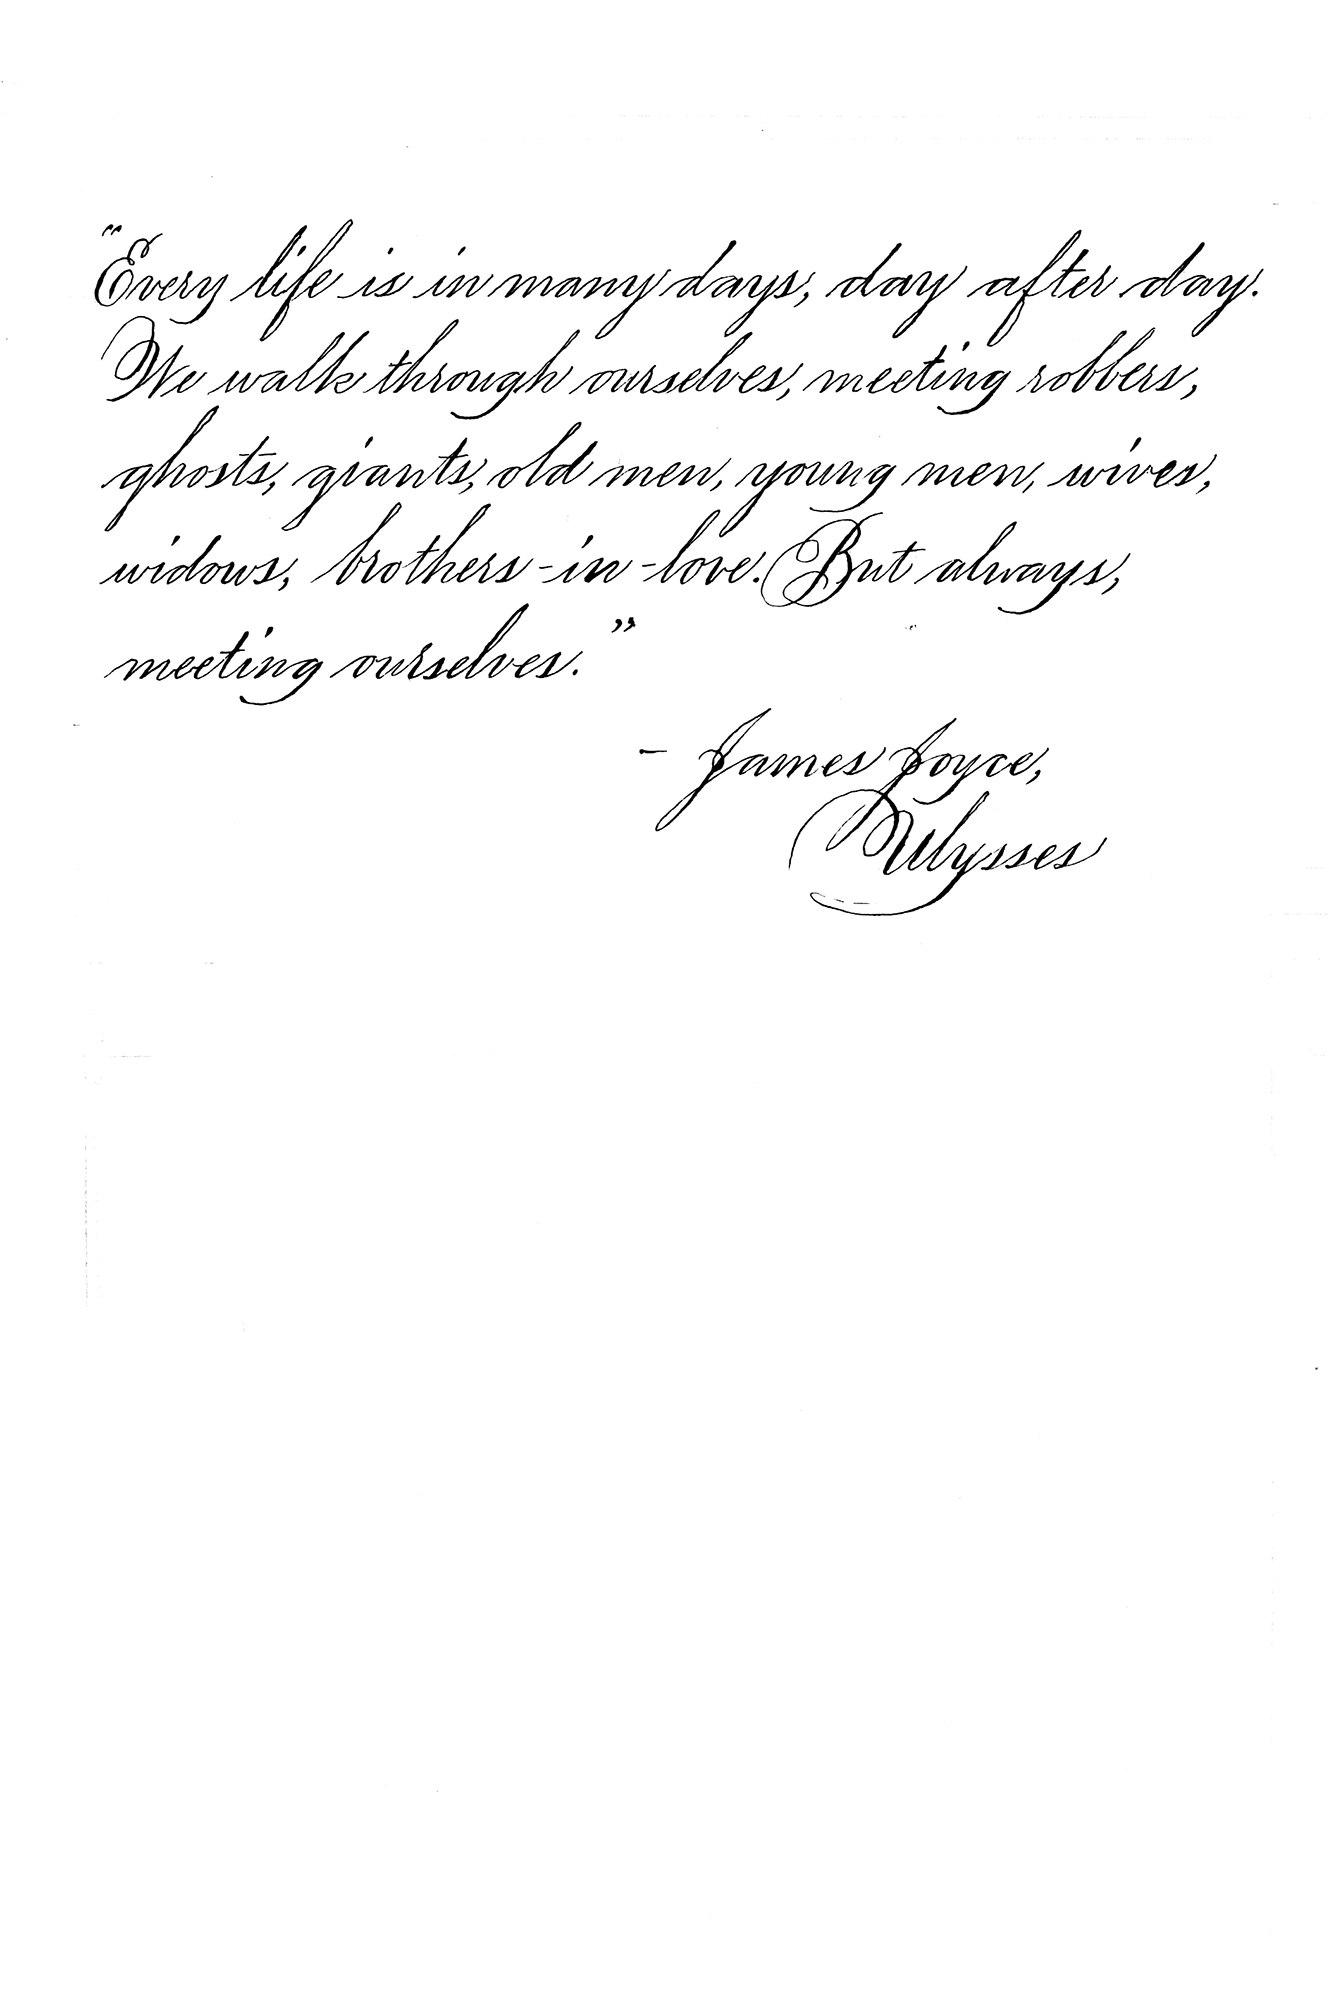 “Every life is in many days, day after day.
We walk through ourselves, meeting robbers,
ghosts, giants, old men, young men, wives,
widows, brothers-in-love. But always,
meeting ourselves.”
– James Joyce,
Ulysses